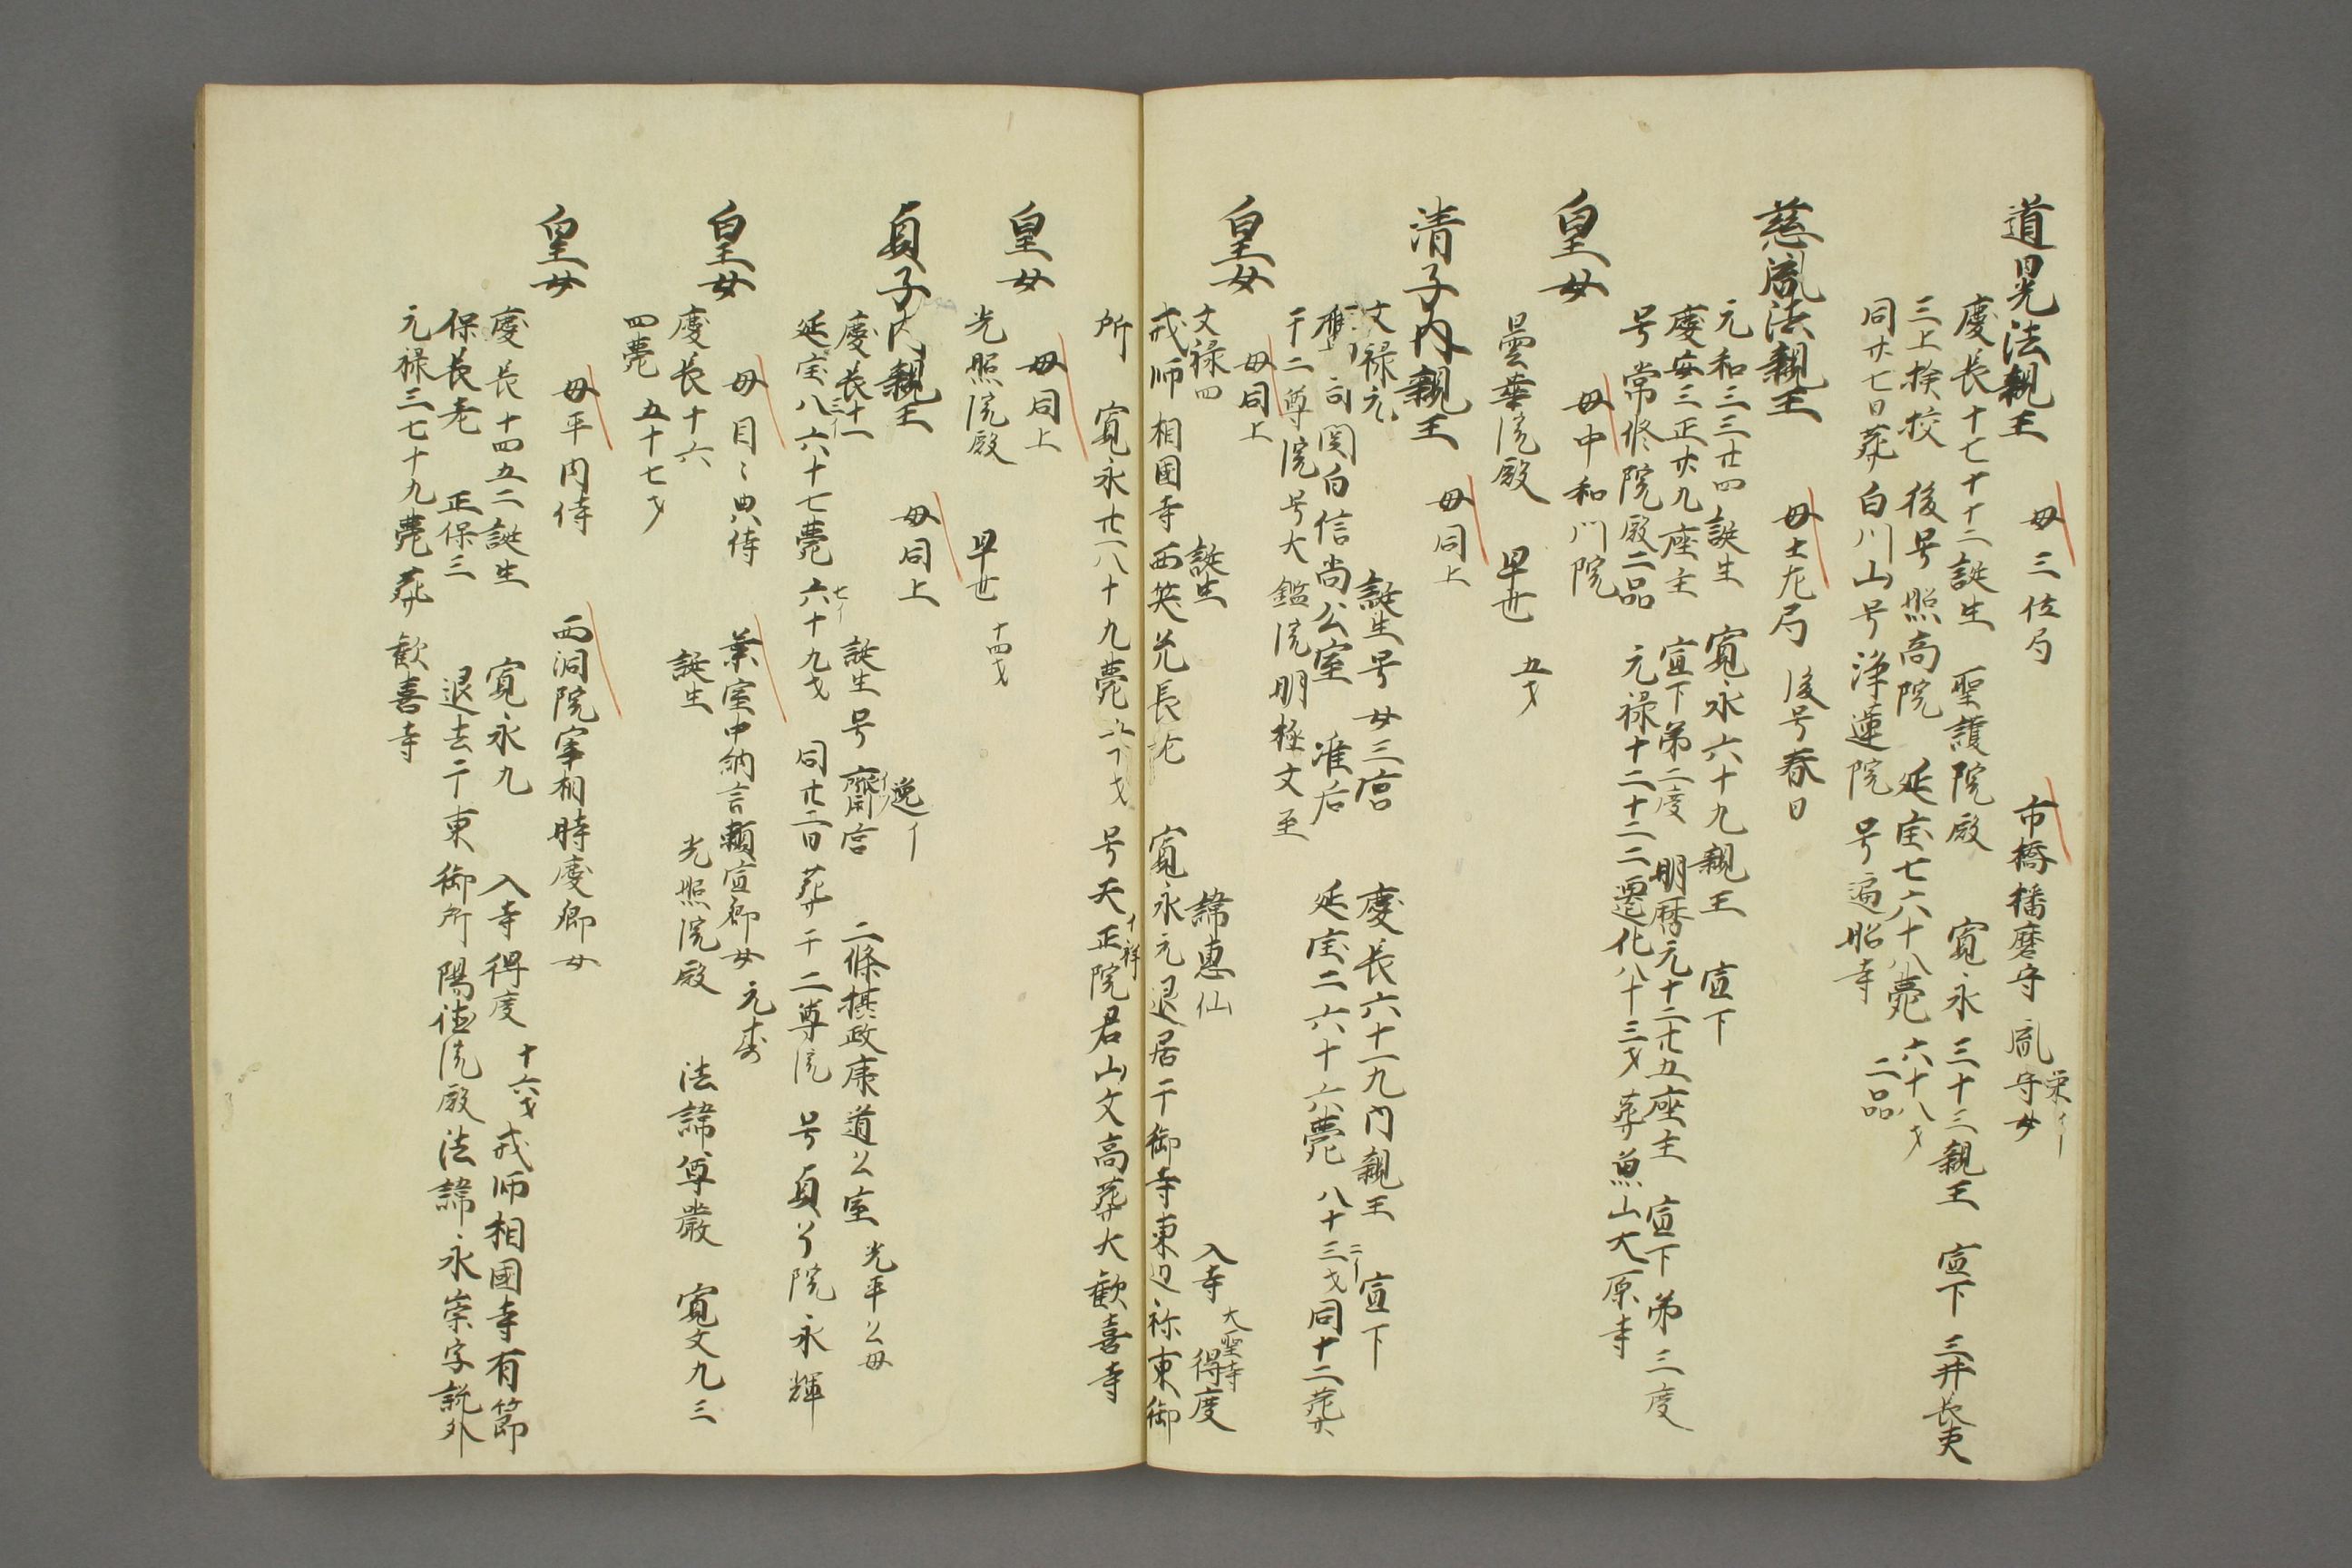 道晃法親王 母三位局 市橋播磨守胤栄イ守女
慶長十七十十二誕生 聖護院殿 寛永三十三親王宣下 三井長吏
三上検校 後号照高院 延宝七六十八薨 六十八才 二品
同廿七日葬白川山号浄蓮院 号遍照寺
慈胤法親王 母土左局 後号春日
元和三三廿四誕生 寛永六十九親王宣下
慶安三正廿九座主宣下第二度 明暦元十二廿五座主宣下第三度
号常修院殿二品 元禄十二十二二遷化八十三才葬魚山大原寺
皇女 母中和門院
曇華院殿 早世 五才
清子内親王 母同上
文禄元 誕生号女三宮 慶長六十一九内親王宣下
鷹司関白信尚公室 准后 延宝二六十六薨 八十三才 二イ 同十二葬
于二尊院号大鑑院明極文至
皇女 母同上
文禄四 誕生 諱恵仙 入寺大聖寺 得度
戒師相国寺西笑兌長老 寛永元退居于御寺東辺称東御
所 寛永廿一八十九薨 才 号天正イ祥院君山文高葬大歓喜寺
皇女 母同上
光照院殿 早世 十四才
貞子内親王 母同上
慶長十一三イ 誕生号齋宮 逸イ 二條摂政康道公室 光平公母
延宝八六十七薨 六十九才 七イ 同廿二日葬于二尊院 号貞了院永輝
皇女 母目々典侍 葉室中納言頼宣卿女 元寿
慶長十六 誕生 光照院殿 法諱尊厳 寛文九三
四薨 五十七才
皇女 母平内侍 西洞院宰相時慶卿女
慶長十四五二誕生 寛永九 入寺得度十六才 戒師相国寺有節
保長老 正保三 退去于東御所 陽徳院殿法諱永崇字説外
元禄三七十九薨葬歓喜寺